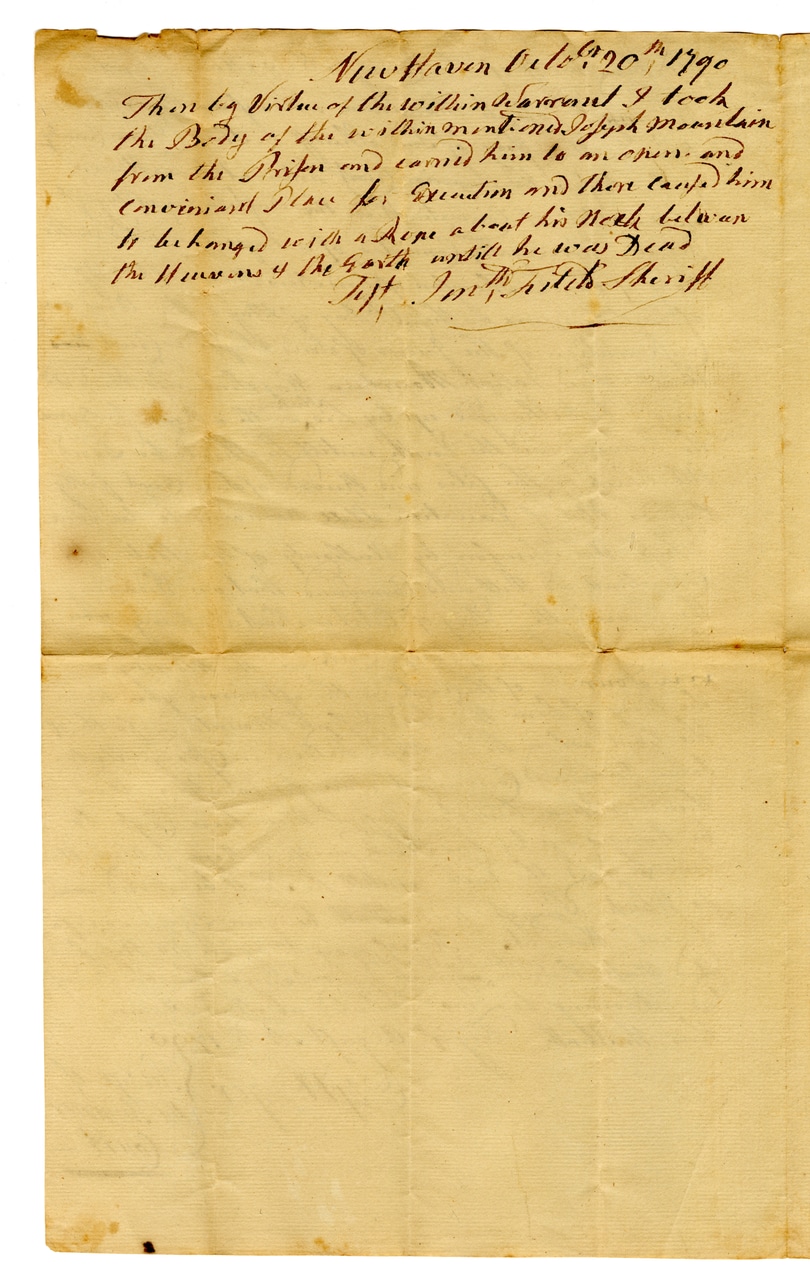 New Haven Octobr 20th 1790
Then by Virtue of the within Warrant I took
the Body of the within mentioned Joseph Mountain
from the Prison and carried him to an open and
conviniant Place for Execution and there caused him
to be hanged with a Rope about his Neck between
the Heavens & the Earth untill he was Dead
Test Jonth Sheriff